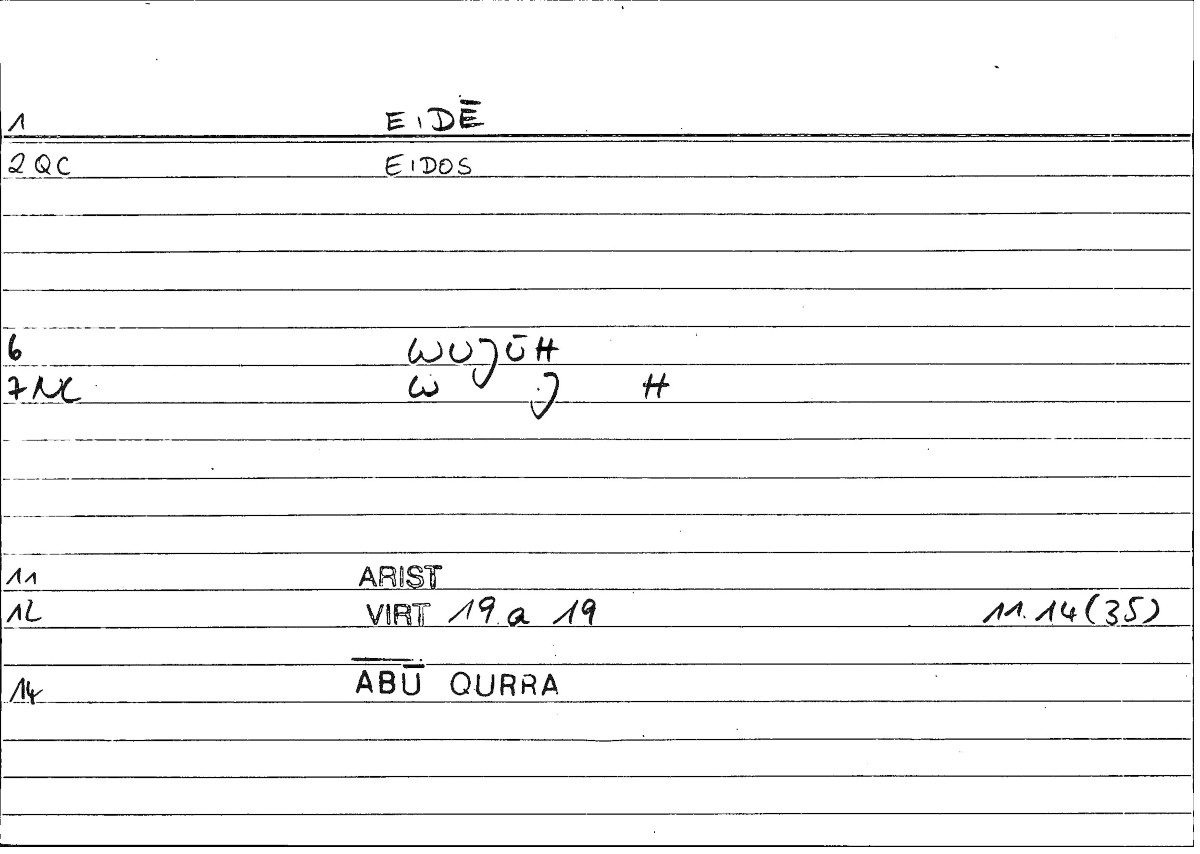 1 EIDĒ
2 QC EIDOS
6 WUJŪH
7 NC W J H
11 ARIST
12 VIRT 19 a 19 11.14(35)
14 ABŪ QURRA